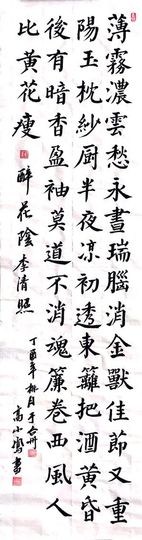 薄霧濃雲愁永晝瑞腦消金獸佳節又重
陽玉枕紗厨半夜凉初透東籬把酒黄昏
後有暗香盈袖莫道不消魂簾卷西風人
比黄花瘦 醉花陰李清照
丁酉年秋月于台州
高小鸞書